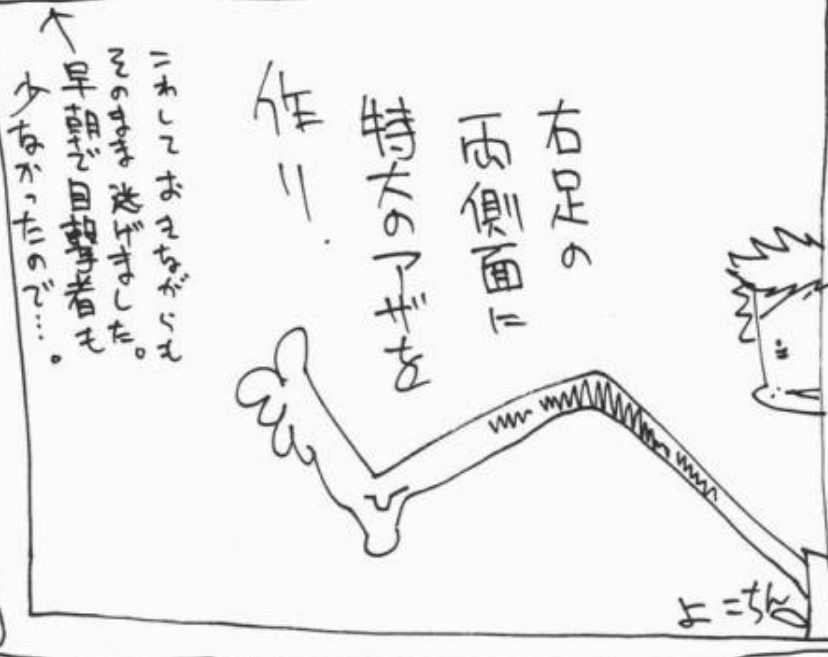 右足の
両側面に
特大のアザを
作り.
こわしておきながらも
そのまま逃げました。
↑早朝で目撃者も
少なかったので…。
よこちん